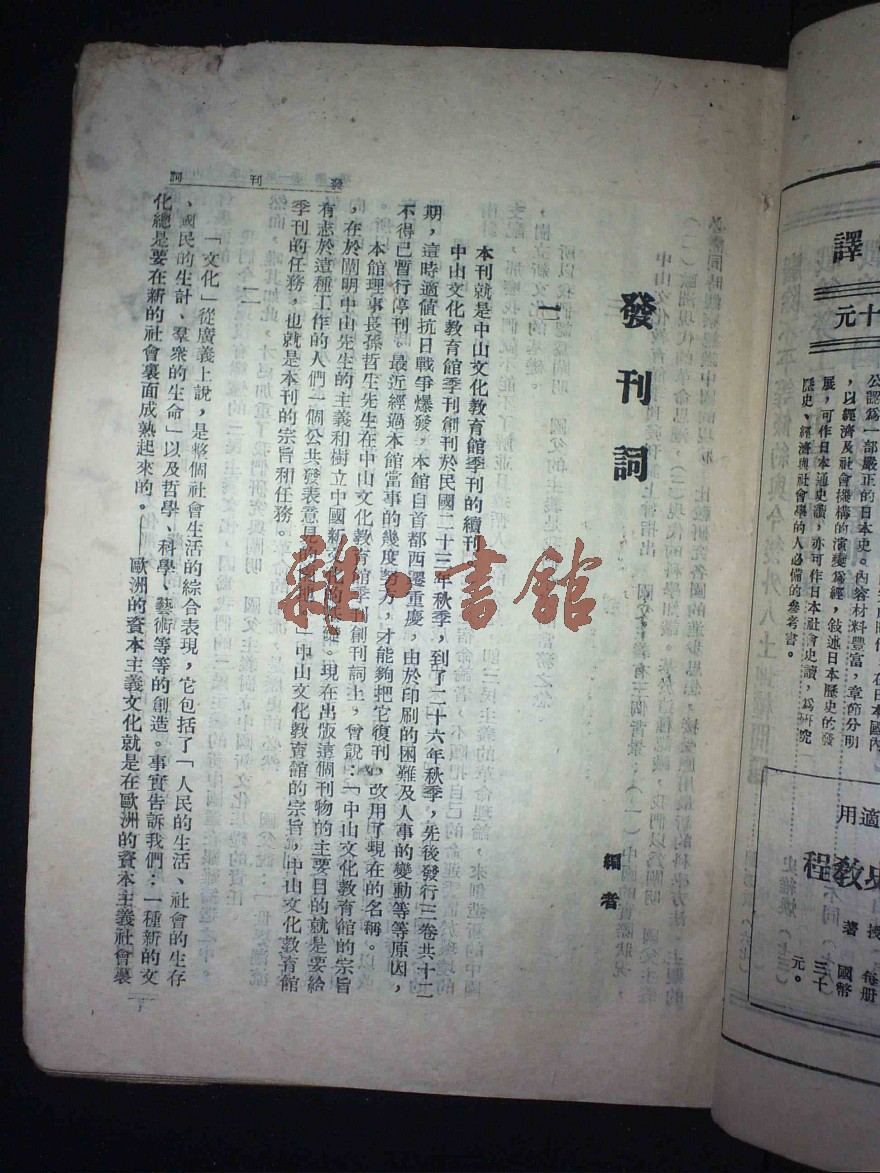 譯
十元
公認爲一部嚴正的日本史。
在日本國內
，以經濟及社會機構的演變爲經，敘述日本歷史的發
內容材料豐富，章節分明
展，可作日本通史讀，亦可作日本社會史讀，爲研究
歷史、經濟與社會學的人必備的參考書。
適用
史教程
授著
每册國幣
三十元。
發刊詞
編者
一
本刊就是中山文化教育館季刊的續刊。
中山文化教育館季刊創刊於民國二十三年秋季，到了二十六年秋季，先後發行三卷共十二
期，這時適値抗日戰爭爆發，本館自首都西遷重慶，由於印刷的困難及人事的變動等等原因，
不得已暫行停刊。最近經過本館當事的幾度努力，才能夠把它復刊，改用了現在的名稱。
本館理事長孫哲生先生在中山文化教育館季刊創刊詞上，曾說：「中山文化教育館的宗旨
，在於闡明中山先生的主義和樹立中國新文化的基礎。現在出版這個刊物的主要目的就是要給
有志於這種工作的人們一個公共發表意見的」中山文化教育館的宗旨，中山文化教育館
季刊的任務，也就是本刊的宗旨和任務。
二
「文化」從廣義上說，是整個社會生活的綜合表現，它包括了「人民的生活、社會的生存
、國民的生計、羣衆的生命」以及哲學、科學、藝術等等的創造。事實告訴我們：一種新的文
化總是要在新的社會裏面成熟起來的。歐洲的資本主義文化就是在歐洲的資本主義社會裏
發刊詞
一
雜·書館